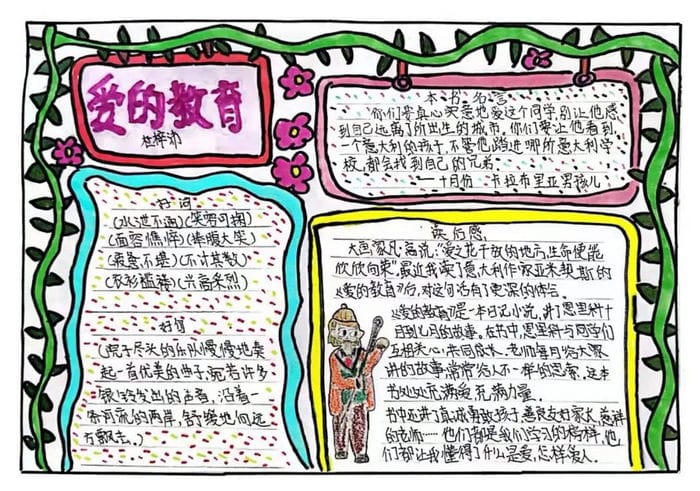 爱的教育
本书名言
你们要真心实意地爱这个同学,别让他感
到自己远离了所出生的城市,你们要让他看到,
一个意大利的孩子,不管他踏进哪所意大利学
校,都会找到自己的兄弟
——十月份·卡拉布里亚男孩儿
好词
(水泄不通)(笑容可掬)
(面容憔悴)(捧腹大笑)
(疲惫不堪)(不计其数)
(衣衫褴褛)(兴高采烈)
好句
(院子尽头的乐队慢慢地奏
起一首优美的曲子,宛若许多
银铃发出的声音,沿着一
条河流的两岸,舒缓地向远
方飘去。)
读后感
大画家凡·高说:“爱之花开放的地方,生命便能
欣欣向荣”最近我读了意大利作家亚米契斯的
《爱的教育》后,对这句话有了更深的体会。
《爱的教育》是一本日记小说,讲了恩里科十
日到七月的故事。在书中,恩里科与同学们
互相关心,共同成长,老师每月给大家
讲的故事,常常给人不一样的思索。这本
书处处充满爱,充满力量。
书中还讲了真诚勇敢孩子,善良友好家长,慈祥
的老师……他们都是我们学习的榜样,他
们都让我懂得了什么是爱,怎样爱人。